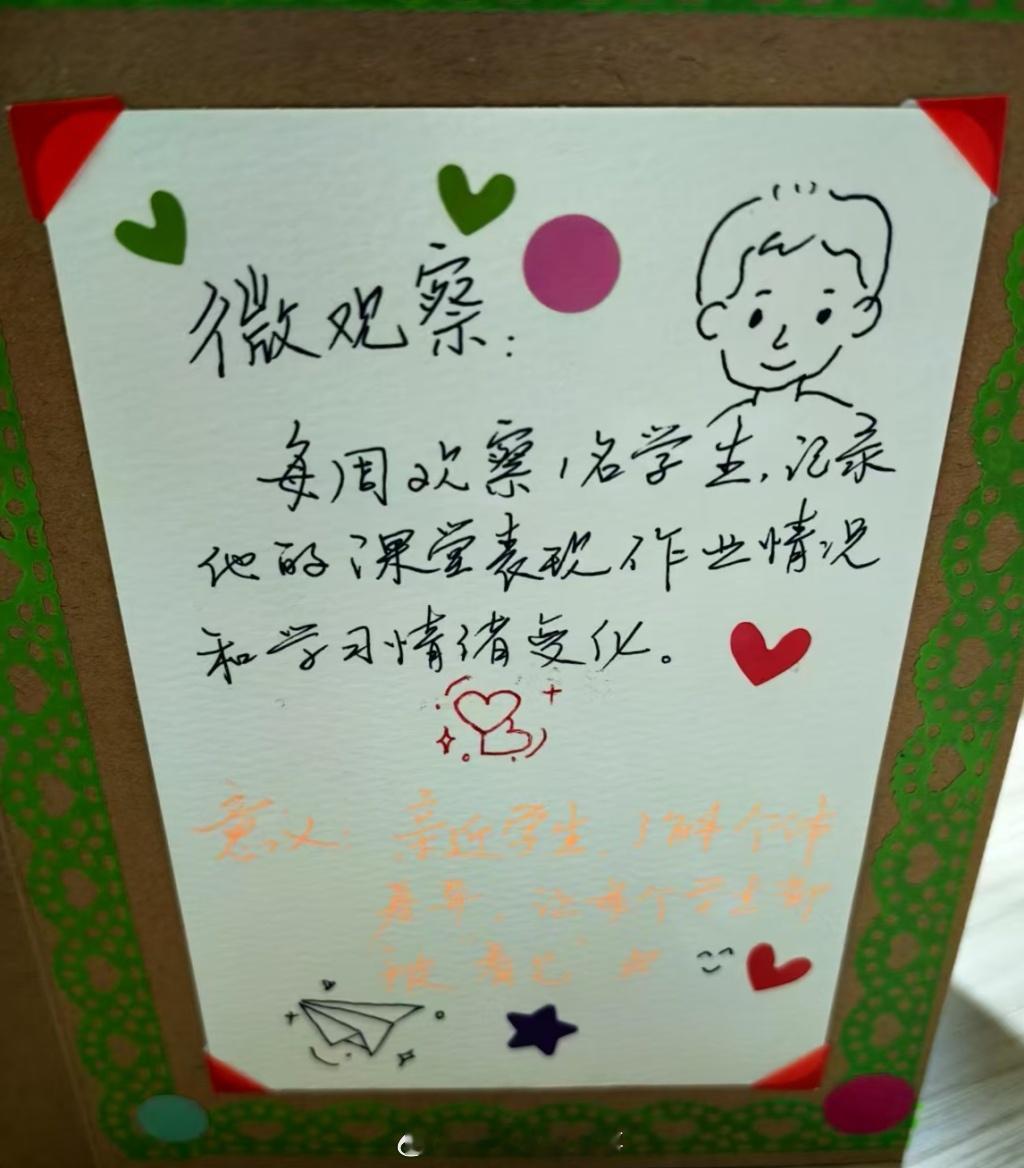 微观察：
每周观察1名学生，记录
他的课堂表现作业情况
和学习情绪变化。
意义：亲近学生，了解个体
差异，让每个学生都
被"看见"